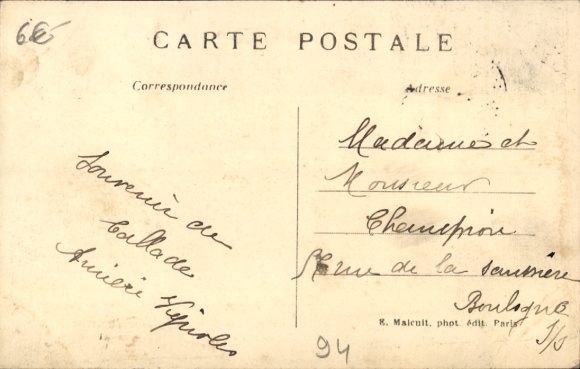 6€
CARTE POSTALE
Correspondance
Adresse
Souvenir de
Ballade
Vignoles
Madame et
Monsieur
Champion
rue de la saussière
Boulogne
S/S
E. Malcuit, phot. édit. Paris
94